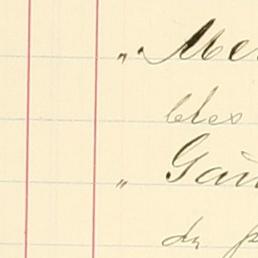 „ Me
bles
„ Gau
du p